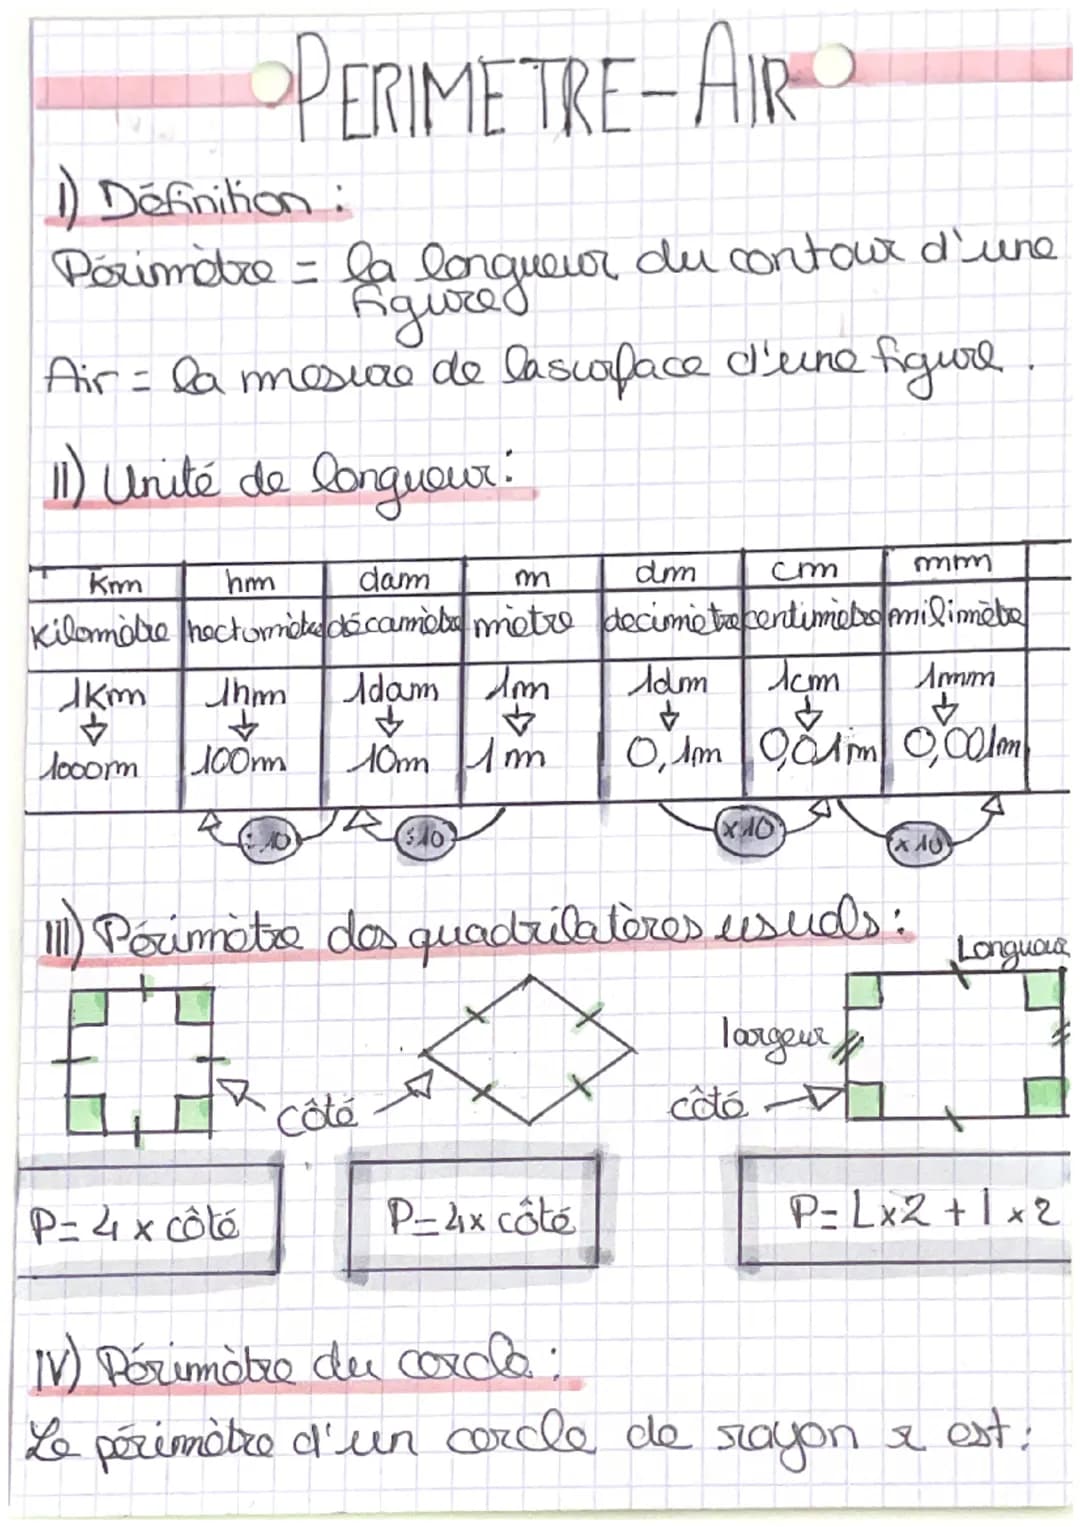 PERIMETRE-AIR
I) Définition :
Périmètre = la longueur du contour d'une
figure
Air = la mesure de la surface d'une figure.
II) Unité de longueur :
km hm dam m dm cm mm
kilomètre hectomètre décamètre mètre decimètre centimètre milimètre
1km 1hm 1dam 1m 1dm 1cm 1mm
1000m 100m 10m 1m 0,1m 0,01m 0,001m
÷10 ÷10 x10 x10
III) Périmètre des quadrilatères usuels :
Longueur
largeur
côté côté
P= 4 x côté P= 4x côté P= Lx2 + l x2
IV) Périmètre du cercle :
Le périmètre d'un cercle de rayon r est :